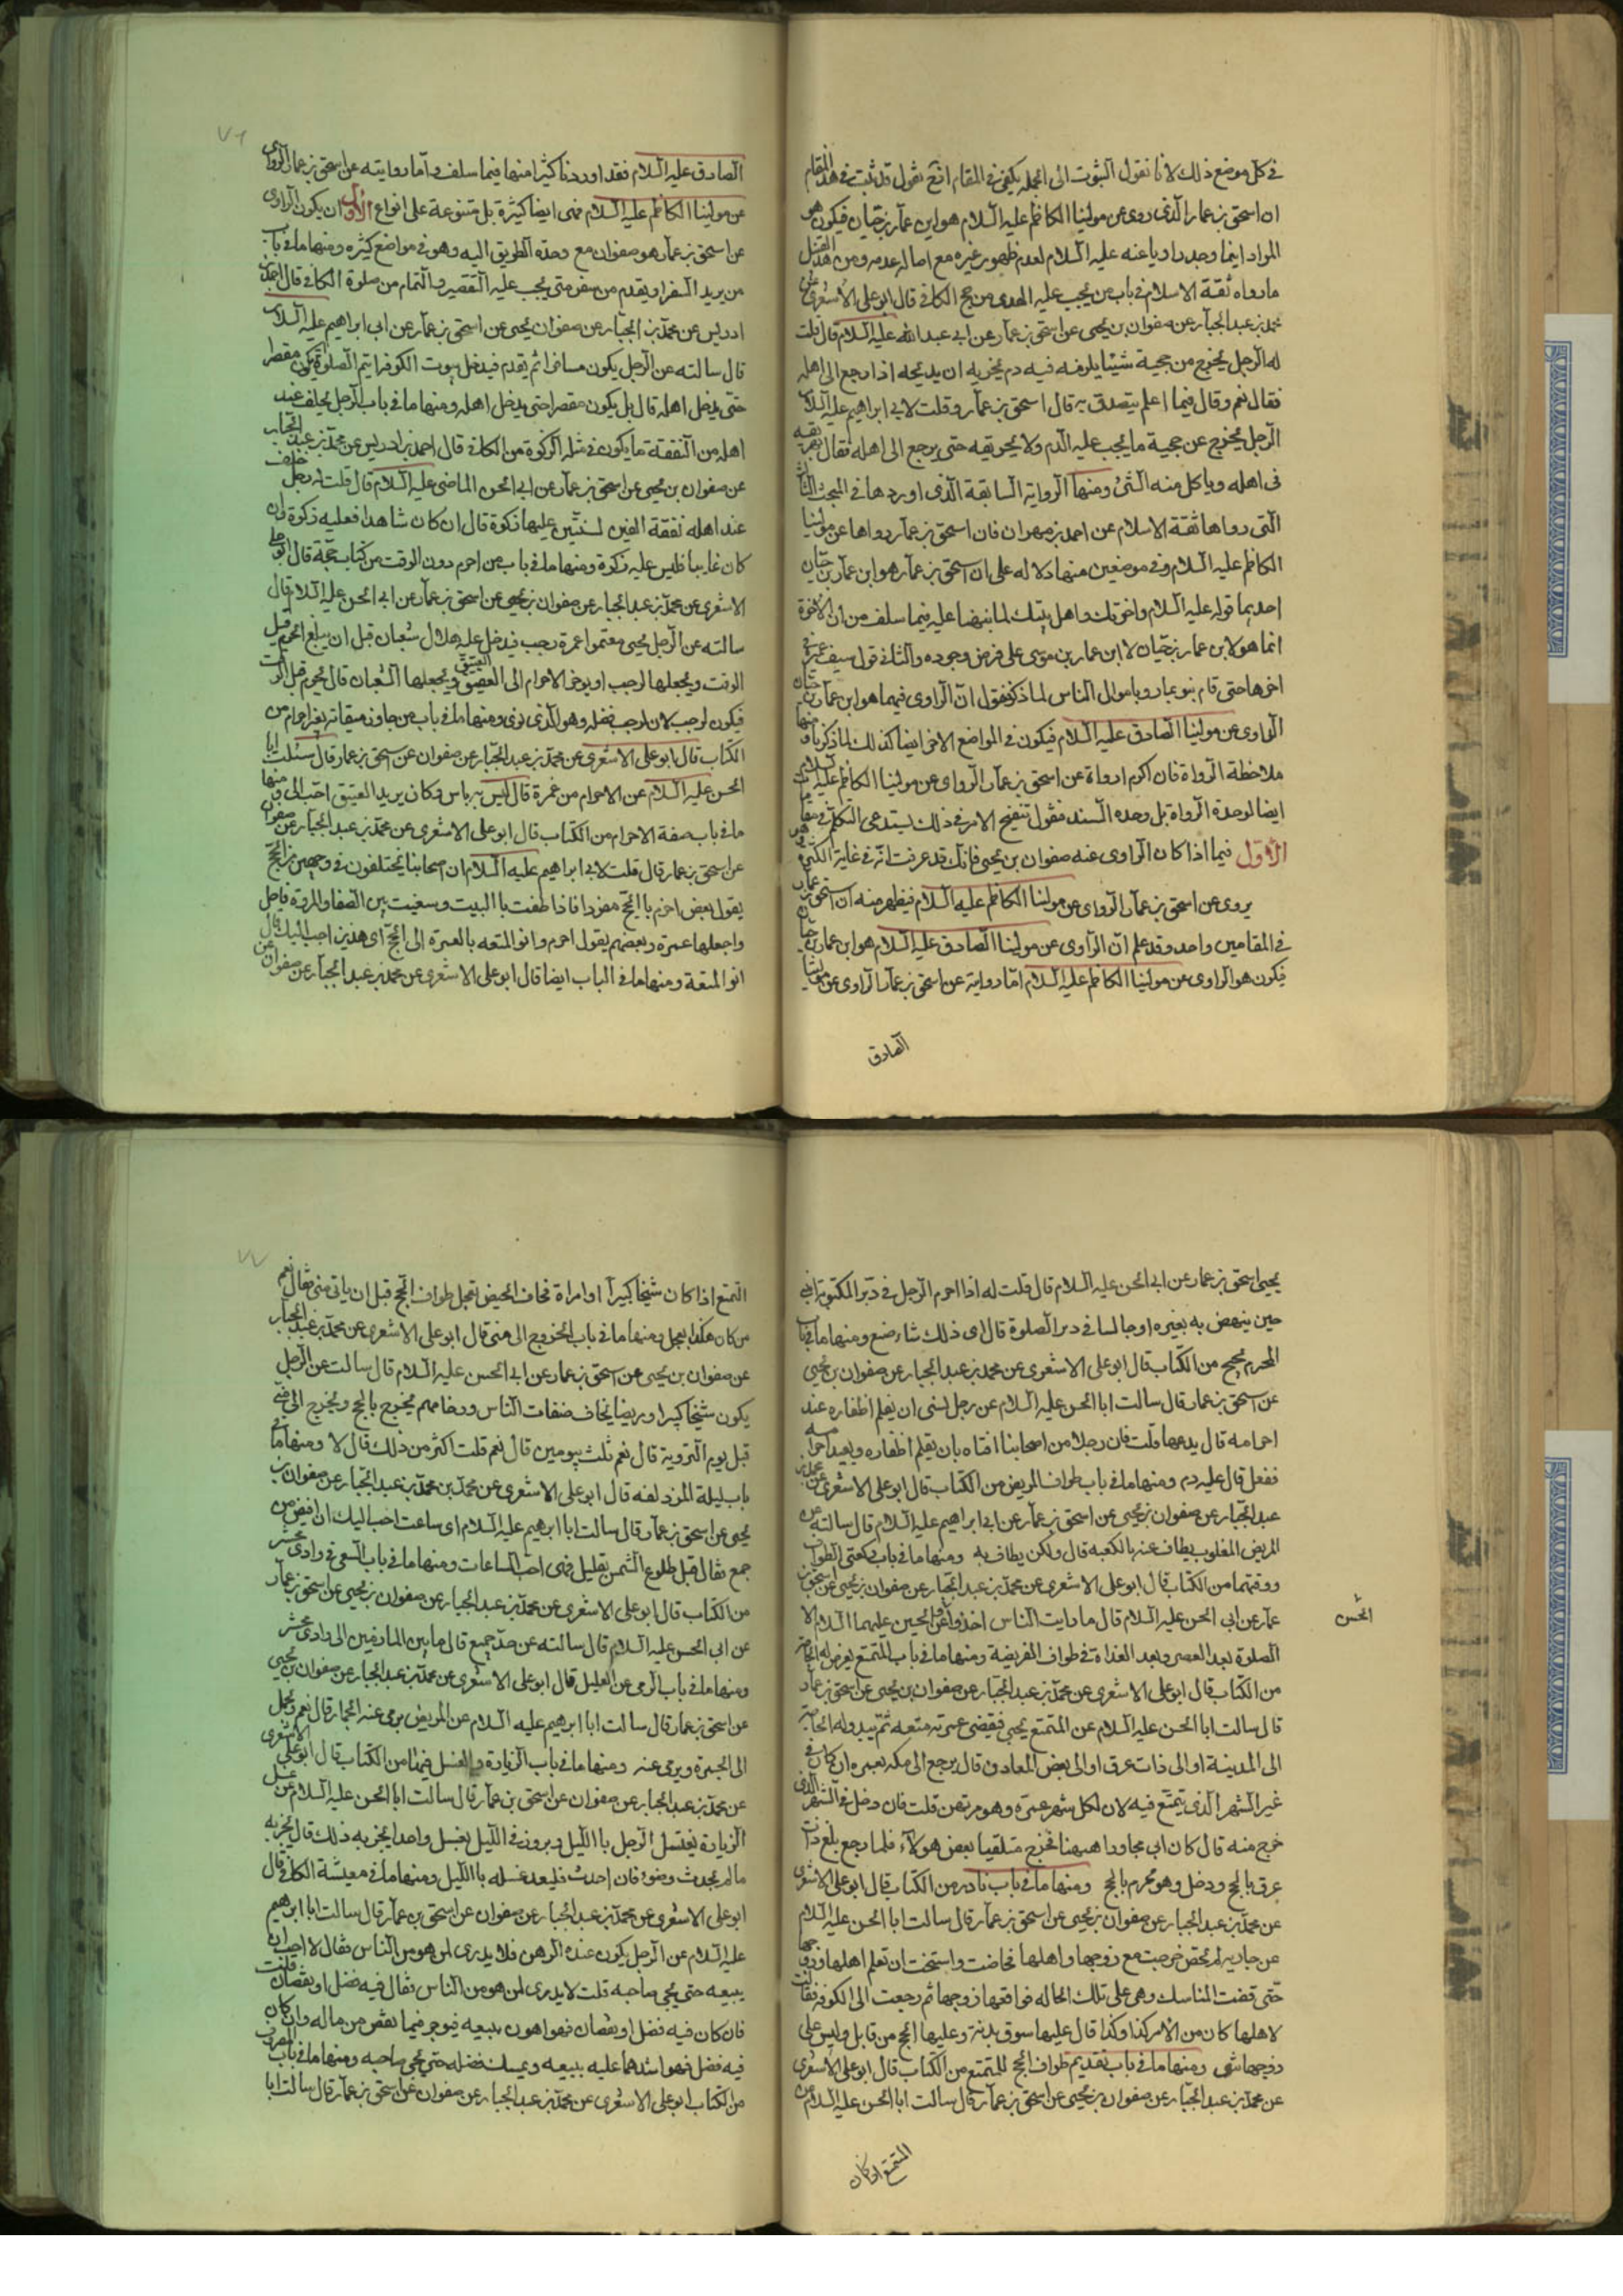 في كل موضع ذلك لانا نقول الثبوت الى الجمله يكفي في المقام اذ نقول قد ثبت في هذا المقام
ان اسحق بن عمار الذي روى عن مولينا الكاظم عليه السلام هو ابن عمار بن حيان فيكون هو
المراد اينما وجد راويا عنه عليه السلام لعدم ظهور غيره مع اصالة عدمه ومن هذا القبيل
ما رواه ثقة الاسلام في باب من يجب عليه الهدى من حج الكافي قال ابو علي الاشعرى عن
محمد بن عبد الجبار عن صفوان بن يحيى عن اسحق بن عمار عن ابي عبد الله عليه السلام قال قلت
له الرجل يخرج من حجته شيئا يلزمه فيه دم يجزيه ان يذبحه اذا رجع الى اهله
فقال نعم وقال فيما اعلم يتصدق به قال اسحق بن عمار وقلت لابي ابراهيم عليه السلام
الرجل يخرج عن حجته ما يجب عليه الدم ولا يهريقه حتى يرجع الى اهله فقال يهريقه
في اهله وياكل منه الشئ ومنها الرواية السابقة الذي اوردها في المبحث الثالث
التي رواها ثقة الاسلام عن احمد بن مهران فان اسحق بن عمار رواها عن مولينا
الكاظم عليه السلام وفي موضعين منها دلاله على ان اسحق بن عمار هو ابن عمار بن حيان
احديهما قوله عليه السلام واخوتك واهل بيتك لما نبهنا عليه فيما سلف من ان الاخوة
انما هو لابن عمار بن حيان لا ابن عمار بن موسى على فرض وجوده والثاني قول سيف بن عميره في
اخرها حتى قام بنو عمار وباموال الناس لما ذكر فنقول ان الراوى فيهما هو ابن عمار بن حيان
الراوى عن مولينا الصادق عليه السلام فيكون في المواضع الاخر ايضا كذلك لما ذكرنا ومنها
ملاحظة الرواة فان اكثر الرواة عن اسحق بن عمار الرواى عن مولينا الكاظم عليه السلام
ايضا لوحدة الرواة بل وحده السند فنقول تنقيح الامر في ذلك يستدعى التكلم في مقامات
الاول فيما اذا كان الراوى عنه صفوان بن يحيى فانك قد عرفت انه في غاية الكثرة
يروى عن اسحق بن عمار الرواى عن مولينا الكاظم عليه السلام فيظهر منه ان اسحق بن عمار
في المقامين واحد وقد علم ان الراوى عن مولينا الصادق عليه السلام هو ابن عمار بن حيان
فيكون هو الراوى عن مولينا الكاظم عليه السلام اما رواية عن اسحق بن عمار الراوى عن مولينا
الصادق
٧٦
الصادق عليه السلام فقد اوردنا كثيرا منها فيما سلف واما روايته عن اسحق بن عمار الرواى
عن مولينا الكاظم عليه السلام فهى ايضا كثيرة بل متنوعة على انواع الاول ان يكون الراوى
عن اسحق بن عمار هو صفوان مع وحدة الطريق اليه وهو في مواضع كثيره ومنها ما في باب
من يريد السفر او يقدم من سفر متى يجب عليه التقصير والتمام من صلوة الكافي قال احمد بن
ادريس عن محمد بن عبد الجبار عن صفوان بن يحيى عن اسحق بن عمار عن ابي ابراهيم عليه السلام
قال سالته عن الرجل يكون مسافرا ثم يقدم فيدخل بيوت الكوفه ايتم الصلوة ام يكون مقصرا
حتى يدخل اهله قال بل يكون مقصرا حتى يدخل اهله ومنها ما في باب الرجل يخلف عند
اهله من النفقة ما يكون في مثله الزكوة من الكافي قال احمد بن ادريس عن محمد بن عبد الجبار
عن صفوان بن يحيى عن اسحق بن عمار عن ابي الحسن الماضى عليه السلام قال قلت له رجل خلف
عند اهله نفقة الفين لسنتين عليها زكوة قال ان كان شاهدا فعليه زكوة وان
كان غايبا فليس عليه زكوة ومنها ما في باب من احرم دون الوقت من كتاب حجة قال ابو علي
الاشعرى عن محمد بن عبد الجبار عن صفوان بن يحيى عن اسحق بن عمار عن ابي الحسن عليه السلام قال
سالته عن الرجل يحيى معتمرا عمرة رجب فيدخل عليه هلال شعبان قبل ان يبلغ احرم قبل
الوقت ويجعلها لرجب او يوخر الاحرام الى العقيق ويجعلها الشعبان قال يحرم قبل الوقت
فيكون لرجب لان لرجب فضله وهو الذي نوى ومنها ما في باب من جاوز ميقاته بغير احرام من
الكتاب قال ابو علي الاشعري عن محمد بن عبد الجبار عن صفوان عن اسحق بن عمار قال سئلت ابا
الحسن عليه السلام عن الاحرام من غمرة قال ليس به باس وكان يريد العتيق احب الى ومنها
ما في باب صفة الاحرام من الكتاب قال ابو علي الاشعرى عن محمد بن عبد الجبار عن صفوان
عن اسحق بن عمار قال قلت لابي ابراهيم عليه السلام ان اصحابنا يختلفون في وجهين من الحج
يقول بعض احرم بالحج مفردا فاذا طفت بالبيت وسعيت بين الصفا والمروة فاحل
واجعلها عمرة وبعضهم يقول احرم وانو المتعه بالعمرة الى الحج اى هذين احب اليك قال
انو المتعة ومنها ما في الباب ايضا قال ابو علي الاشعري عن محمد بن عبد الجبار عن صفوان عن
يحيى اسحق بن عمار عن ابي الحسن عليه السلام قال قلت له اذا احرم الرجل في دبر المكتوبة ايلبى
حين ينهض به بعيره او جالسا في دبر الصلوة قال اى ذلك شاء صنع ومنها ما في باب
المحرم يحج من الكتاب قال ابو علي الاشعرى عن محمد بن عبد الجبار عن صفوان بن يحيى
عن اسحق بن عمار قال سالت ابا الحسن عليه السلام عن رجل نسى ان يقلم اظفاره عند
احرامه قال يدعها قلت فان رجلا من اصحابنا افتاه بان يقلم اظفاره ويعيد احرامه
ففعل قال عليه دم ومنها ما في باب طواف المريض من الكتاب قال ابو علي الاشعرى عن محمد بن
عبد الجبار عن صفوان بن يحيى عن اسحق بن عمار عن ابي ابراهيم عليه السلام قال سالته عن
المريض المغلوب يطاف عنه بالكعبه قال ولكن يطاف به ومنها ما في باب ركعتى الطواف
ووقتهما من الكتاب قال ابو علي الاشعري عن محمد بن عبد الجبار عن صفوان بن يحيى عن اسحق بن
عمار عن ابي الحسن عليه السلام قال ما رايت الناس اخذوا عن والحسين عليهما السلام الا
الحسن
الصلوة بعد العصر وبعد الغداة في طواف الفريضة ومنها ما في باب المتمتع يعرض له الحاجة
من الكتاب قال ابو علي الاشعري عن محمد بن عبد الجبار عن صفوان بن يحيى عن اسحق بن عمار
قال سالت ابا الحسن عليه السلام عن المتمتع يجئ فيقضى عمرته متعه ثم تبدو له الحاجة
الى المدينة او الى ذات عرق او الى بعض المعادن قال يرجع الى مكه بعمره ان كان في
غير الشهر الذي يتمتع فيه لان لكل شهر عمرة وهو مرتهن قلت فان دخل في الشهر الذي
خرج منه قال كان ابي مجاورا هيهنا فخرج متلقيا بعض هولآء فلما رجع بلغ ذات
عرق بالحج ودخل وهو محرم بالحج ومنها ما في باب نادر من الكتاب قال ابو علي الاشعرى
عن محمد بن عبد الجبار عن صفوان بن يحيى عن اسحق بن عمار قال سالت ابا الحسن عليه السلام
عن جاريه لم تحض خرجت مع زوجها واهلها فحاضت واستحيت ان تعلم اهلها وزوجها
حتى قضت المناسك وهى على تلك الحاله فواقعها زوجها ثم رجعت الى الكوفه فقالت
لاهلها كان من الامر كذا وكذا قال عليها سوق بدنة وعليها الحج من قابل وليس على
زوجها شى ومنها ما في باب تقديم طواف الحج للمتمتع من الكتاب قال ابو علي الاشعرى
عن محمد بن عبد الجبار عن صفوان بن يحيى عن اسحق بن عمار قال سالت ابا الحسن عليه السلام عن
المتمتع اذا كان
٧٧
التمتع اذا كان شيخا كبيرا او امراة تخاف الحيض تعجل طواف الحج قبل ان ياتى منى فقال نعم
من كان هكذا يعجل ومنها ما في باب الخروج الى منى قال ابو علي الاشعرى عن محمد بن عبد الجبار
عن صفوان بن يحيى عن اسحق بن عمار عن ابي الحسن عليه السلام قال سالت عن الرجل
يكون شيخا كبيرا او مريضا يخاف ضغاط الناس وزحامهم يخرج بالحج ويخرج الى منى
قبل يوم التروية قال نعم قلت بيومين قال نعم قلت اكثر من ذلك قال لا ومنها ما في
باب ليلة المزدلفه قال ابو علي الاشعرى عن محمد بن محمد بن عبد الجبار عن صفوان بن
يحيى عن اسحق بن عمار قال سالت ابا ابرهيم عليه السلام اى ساعت احب اليك ان افيض من
جمع فقال قبل طلوع الشمس بقليل فهى احب الساعات ومنها ما في باب السعى في وادى محسر
من الكتاب قال ابو علي الاشعري عن محمد بن عبد الجبار عن صفوان بن يحيى عن اسحق بن عمار
عن ابي الحسن عليه السلام قال سالته عن حد جمع قال ما بين المازمين الى وادى محسر
ومنها ما في باب الرمى عن العليل قال ابو علي الاشعرى عن محمد بن عبد الجبار عن صفوان بن يحيى
عن اسحق بن عمار قال سالت ابا ابرهيم عليه السلام عن المريض يرمى عنه الجمار قال نعم يحمل
الى الجمرة ويرمى عنه ومنها ما في باب الزيارة والغسل فيها من الكتاب قال ابو علي الاشعرى
عن محمد بن عبد الجبار عن صفوان عن اسحق بن عمار قال سالت ابا الحسن عليه السلام عن غسل
الزيارة يغتسل الرجل باالليل ويزور في الليل بغسل واحد ايجزيه ذلك قال يجزيه
ما لم يحدث وضوء فان احدث فليعد غسله باالليل ومنها ما في معيشة الكافي قال
ابو علي الاشعرى عن محمد بن عبد الجبار عن صفوان عن اسحق بن عمار قال سالت ابا ابرهيم
عليه السلام عن الرجل يكون عنده الرهن فلا يدرى لمن هو من الناس فقال لا احب ان
يبيعه حتى يجى صاحبه قلت لا يدرى لمن هو من الناس فقال فيه فضل او نقصان قلت
فان كان فيه فضل او نقصان فهو اهون يبيعه فيوجر فيما نقص من ماله وان كان
فيه فضل فهو اشدهما عليه يبيعه ويمسك فضله حتى يجى صاحبه ومنها ما في باب الصروف
من الكتاب ابو علي الاشعرى عن محمد بن عبد الجبار عن صفوان عن اسحق بن عمار قال سالت ابا